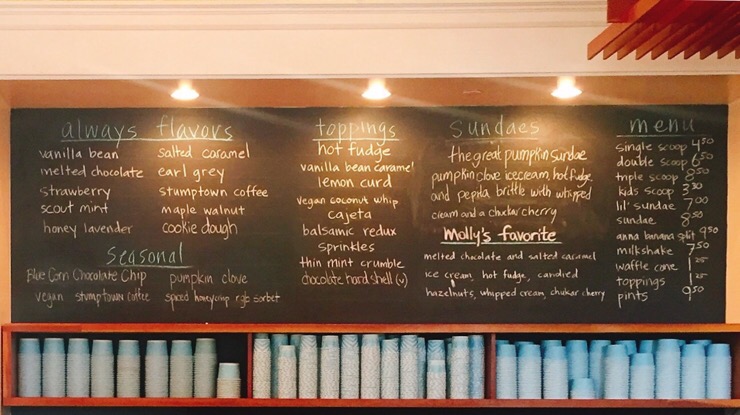 always flavors
vanilla bean
melted chocolate
strawberry
scout mint
honey lavender
salted caramel
earl grey
stumptown coffee
maple walnut
cookie dough
Seasonal
Blue Corn Chocolate Chip
vegan stumptown coffee
pumpkin clove
spiced honeycrisp rgb sorbet
toppings
hot fudge
vanilla bean caramel
lemon curd
vegan coconut whip
cajeta
balsamic redux
sprinkles
thin mint crumble
chocolate hard shell (v)
Sundaes
the great pumpkin sundae
pumpkin clove icecream, hot fudge,
and pepita brittle with whipped
cream and a chukar cherry
Molly's favorite
melted chocolate and salted caramel
ice cream, hot fudge, candied
hazelnuts, whipped cream, chukar cherry
menu
single scoop 4.50
double scoop 6.50
triple scoop 8.50
kids scoop
lil' sundae 7.00
sundae 8.50
anna banana split 9.50
milkshake 7.50
waffle cone 1.25
toppings 1.25
pints 9.50